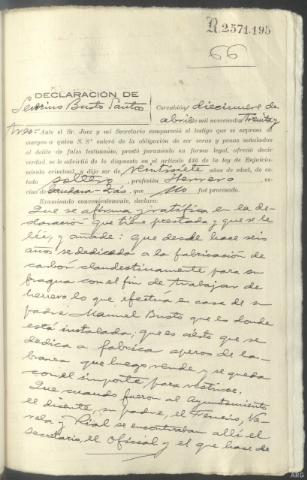 R.2571.195
66
DECLARACION DE
Severino Busto Santos
Curandón/ diecinueve de
abril mil novecientos Treinta y
tres.- Ante el Sr. Juez y mi Secretario compareció el testigo que se expresa
y juego a quien S. Sª enteró de la obligación de ser veraz y penas señaladas
al delito de falso testimonio, prestó juramento en forma legal, ofreció decir
verdad, se le advirtió de lo dispuesto en el artículo 446 de la ley de Enjuicia-
miento criminal, y dijo ser de veintisiete años de edad, de es-
tado soltero, profesión Herrero
, que no fué procesado.
Examinado convenientemente, declara:
Que se afirma y ratifica en la de-
claración que tiene prestada y que se le
lée; y añade: que desde hace seis
años se dedicaba a la fabricación de
carbón clandestinamente para su
fragua con el fin de trabajar de
herrero lo que efectua en casa de su
padre Manuel Busto que es donde
está instalada; que es este que se
dedica a fabricar aperos de la-
branza que luego vende y se queda
con el importe para vestirse.
Que cuando fueron al Ayuntamiento
el dicente, su padre, el Tenencio, Va-
rela y Rial se encontraban allí el
secretario, el Oficial y el que hace de
ARG